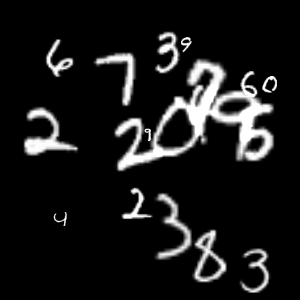 6 7 3 9
7 6 0
2 2 9 0 8
4 2 3
8 3